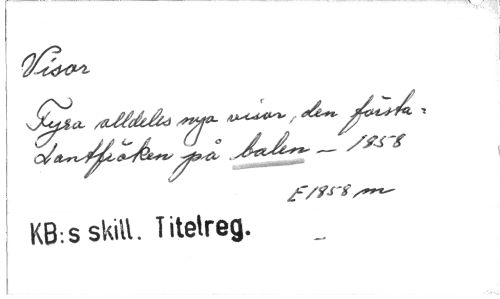 Visor
Fyra alldeles nya visor, den första:
Lantfröken på balen — 1858
E 1858 m
KB:s skill. Titelreg.